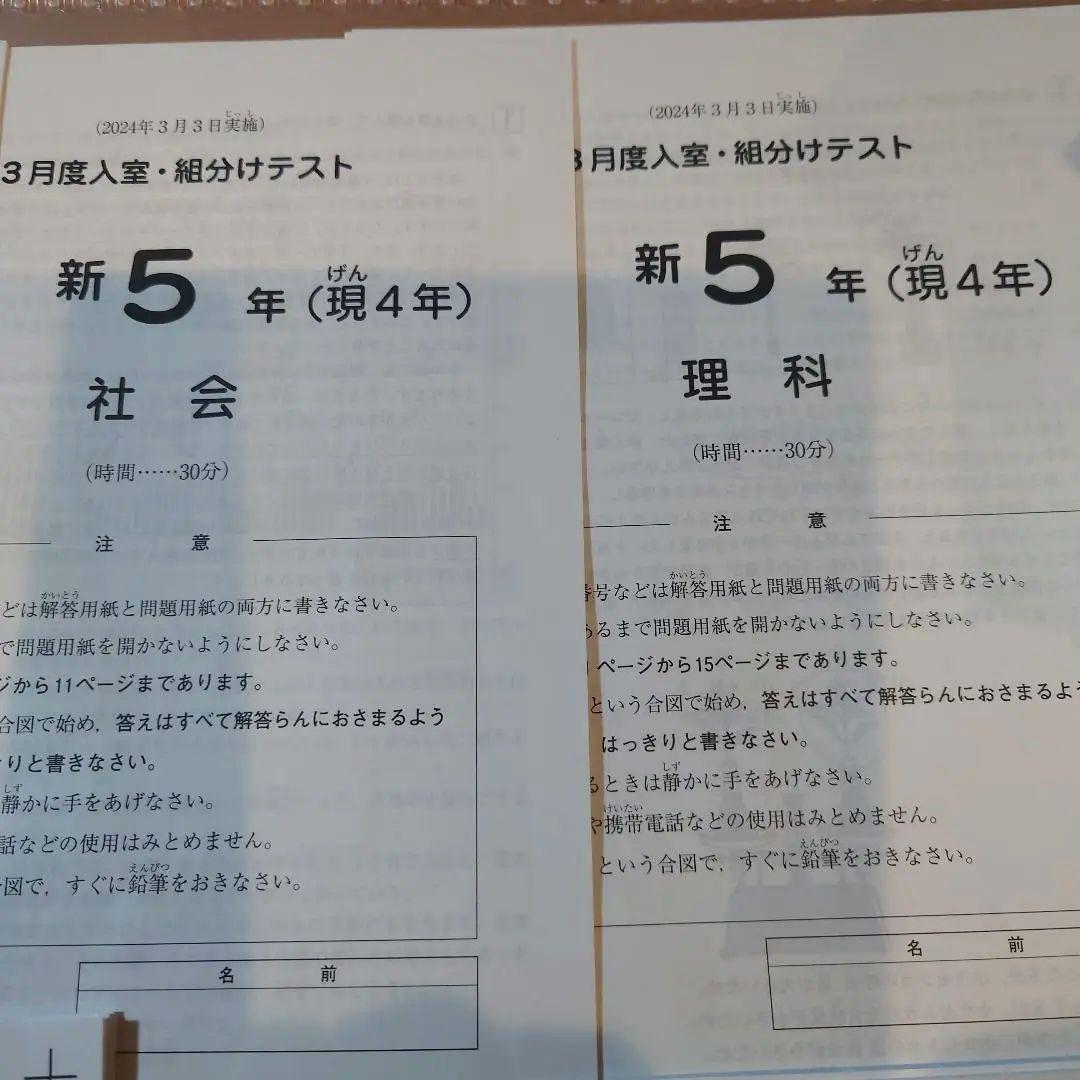 (2024年3月3日実施)
じっし
3月度入室・組分けテスト
新5年(現4年)
げん
社会
(時間……30分)
注意
どは解答用紙と問題用紙の両方に書きなさい。
かいとう
で問題用紙を開かないようにしなさい。
ジから11ページまであります。
合図で始め,答えはすべて解答らんにおさまるよう
りと書きなさい。
静かに手をあげなさい。
しず
話などの使用はみとめません。
図で,すぐに鉛筆をおきなさい。
えんぴつ
名前
(2024年3月3日実施)
じっし
3月度入室・組分けテスト
新5年(現4年)
げん
理科
(時間……30分)
注意
号などは解答用紙と問題用紙の両方に書きなさい。
かいとう
るまで問題用紙を開かないようにしなさい。
ページから15ページまであります。
という合図で始め,答えはすべて解答らんにおさまるよ
はっきりと書きなさい。
るときは静かに手をあげなさい。
しず
や携帯電話などの使用はみとめません。
けいたい
という合図で,すぐに鉛筆をおきなさい。
えんぴつ
名前